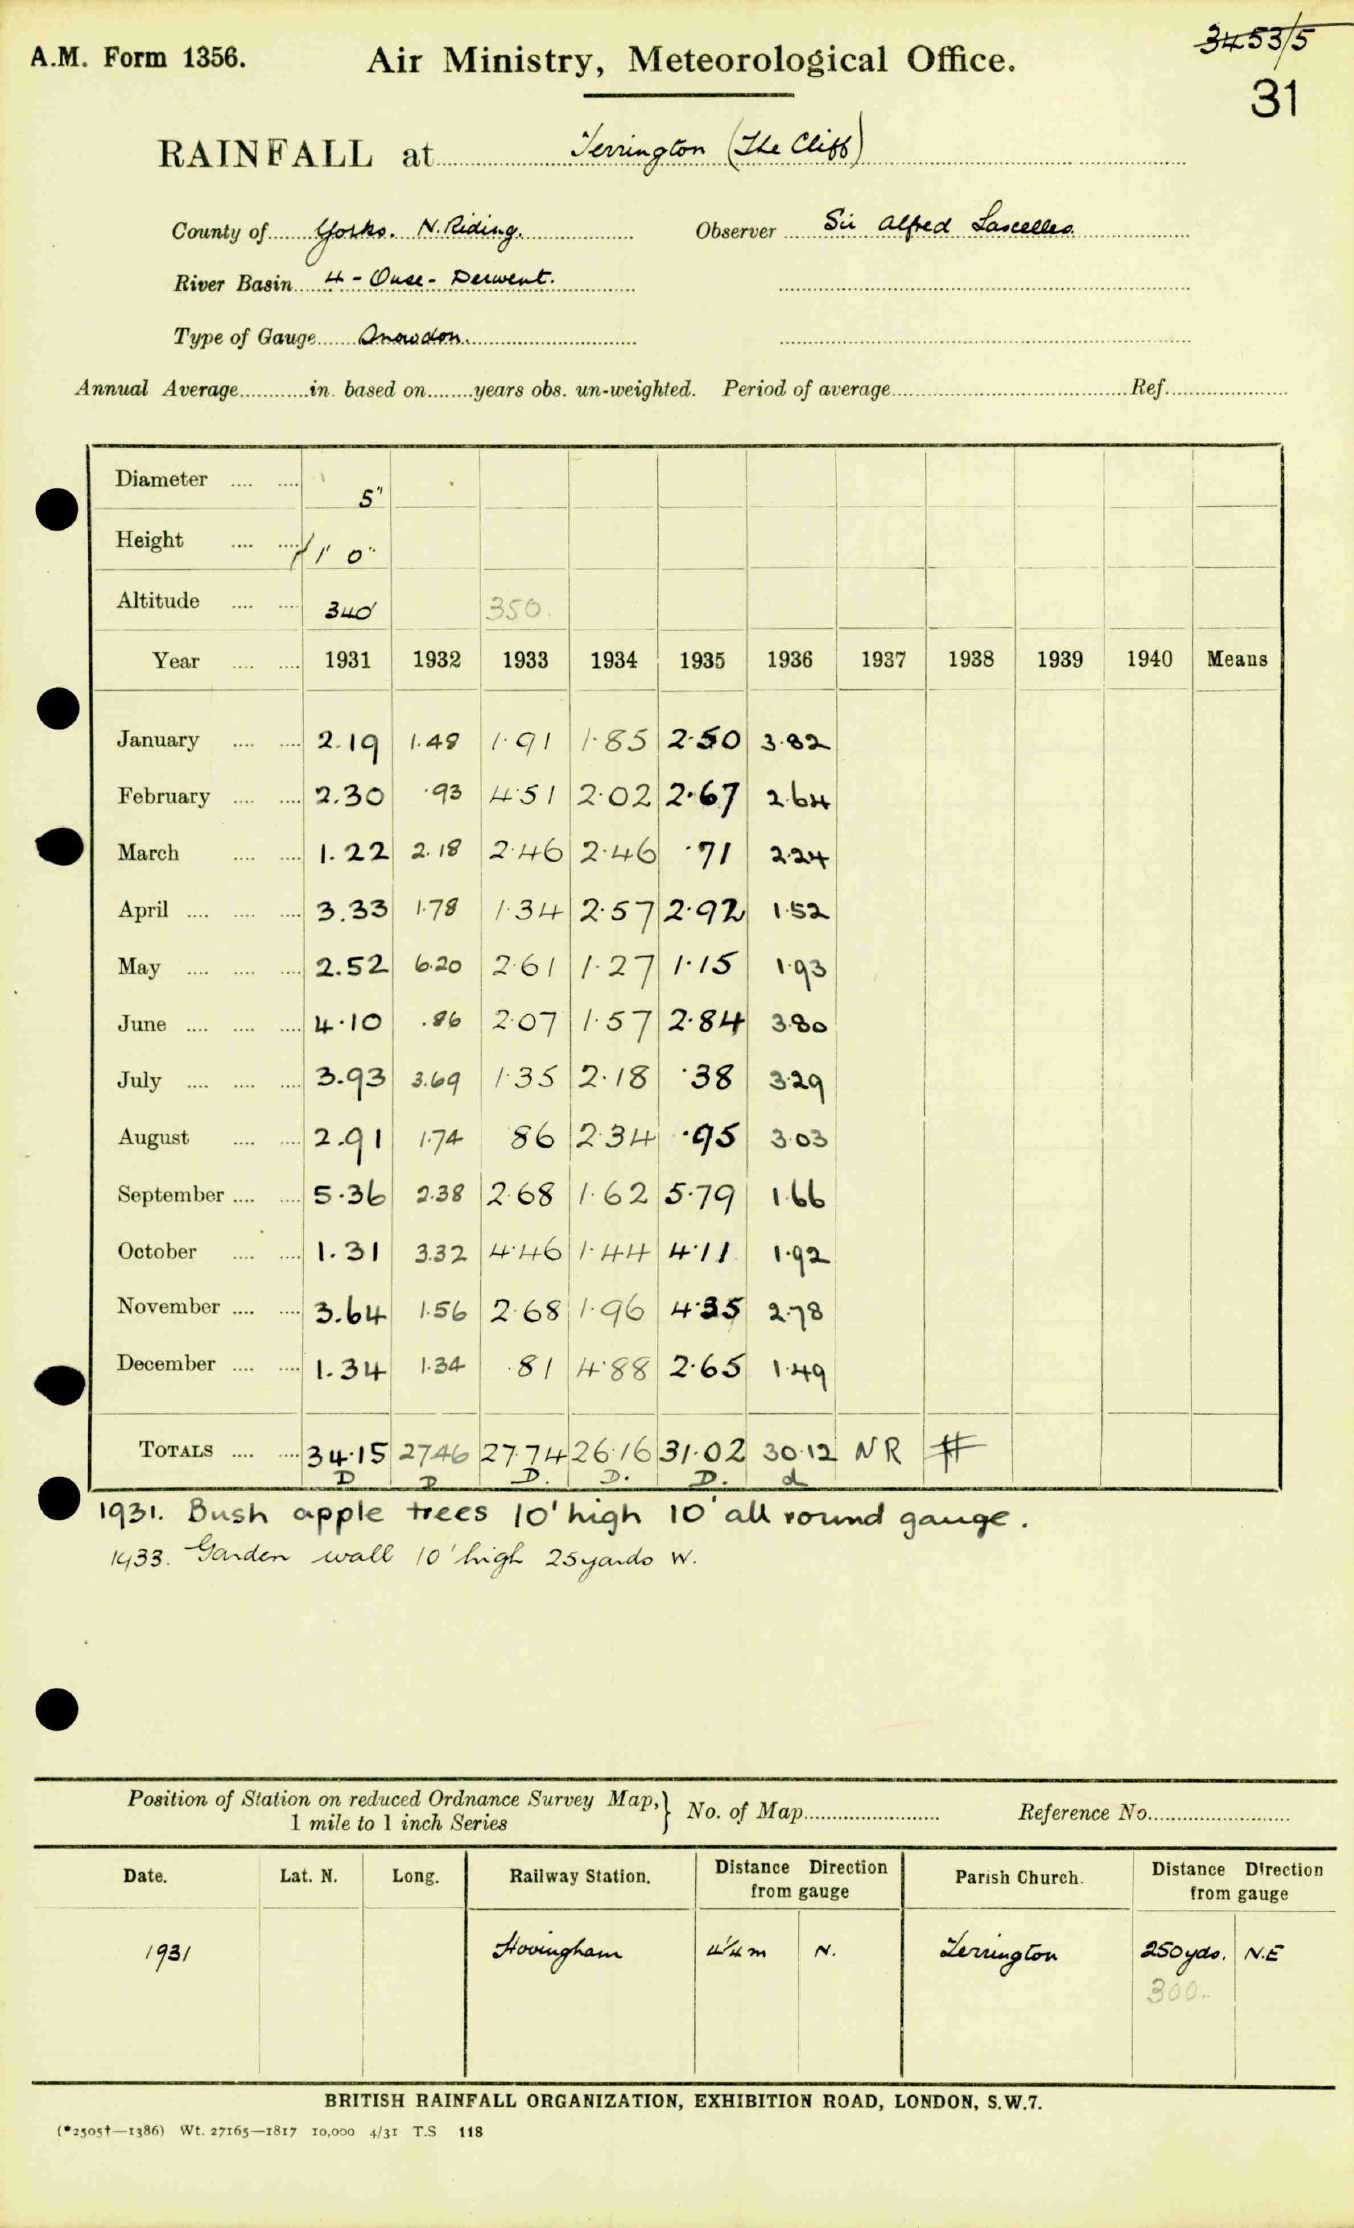 3453/5
A.M. Form 1356. Air Ministry, Meteorological Office.
31
RAINFALL at Terrington (The Cliff)
County of Yorks. N. Riding. Observer Sir Alfred Lascelles.
River Basin 4 - Ouse - Derwent.
Type of Gauge Snowdon.
Annual Average in. based on years obs. un-weighted. Period of average Ref.
Diameter 5"
Height 1' 0"
Altitude 340 350.
Year 1931 1932 1933 1934 1935 1936 1937 1938 1939 1940 Means
January 2.19 1.48 1.91 1.85 2.50 3.82
February 2.30 .93 4.51 2.02 2.67 2.64
March 1.22 2.18 2.46 2.46 .71 2.24
April 3.33 1.78 1.34 2.57 2.92 1.52
May 2.52 6.20 2.61 1.27 1.15 1.93
June 4.10 .86 2.07 1.57 2.84 3.80
July 3.93 3.69 1.35 2.18 .38 3.29
August 2.91 1.74 86 2.34 .95 3.03
September 5.36 2.38 2.68 1.62 5.79 1.66
October 1.31 3.32 4.46 1.44 4.11 1.92
November 3.64 1.56 2.68 1.96 4.35 2.78
December 1.34 1.34 .81 4.88 2.65 1.49
TOTALS 34.15 27.46 27.74 26.16 31.02 30.12 NR
D D D. D. D. d
1931. Bush apple trees 10' high 10' all round gauge.
1933. Garden wall 10' high 25 yards W.
Position of Station on reduced Ordnance Survey Map, } No. of Map Reference No.
1 mile to 1 inch Series
Date. Lat. N. Long. Railway Station. Distance Direction from gauge Parish Church. Distance Direction from gauge
1931 Hovingham 4¼ m N. Terrington 250 yds. N.E
300.
BRITISH RAINFALL ORGANIZATION, EXHIBITION ROAD, LONDON, S.W.7.
(*2505†—1386) Wt. 27165—1817 10,000 4/31 T.S 118